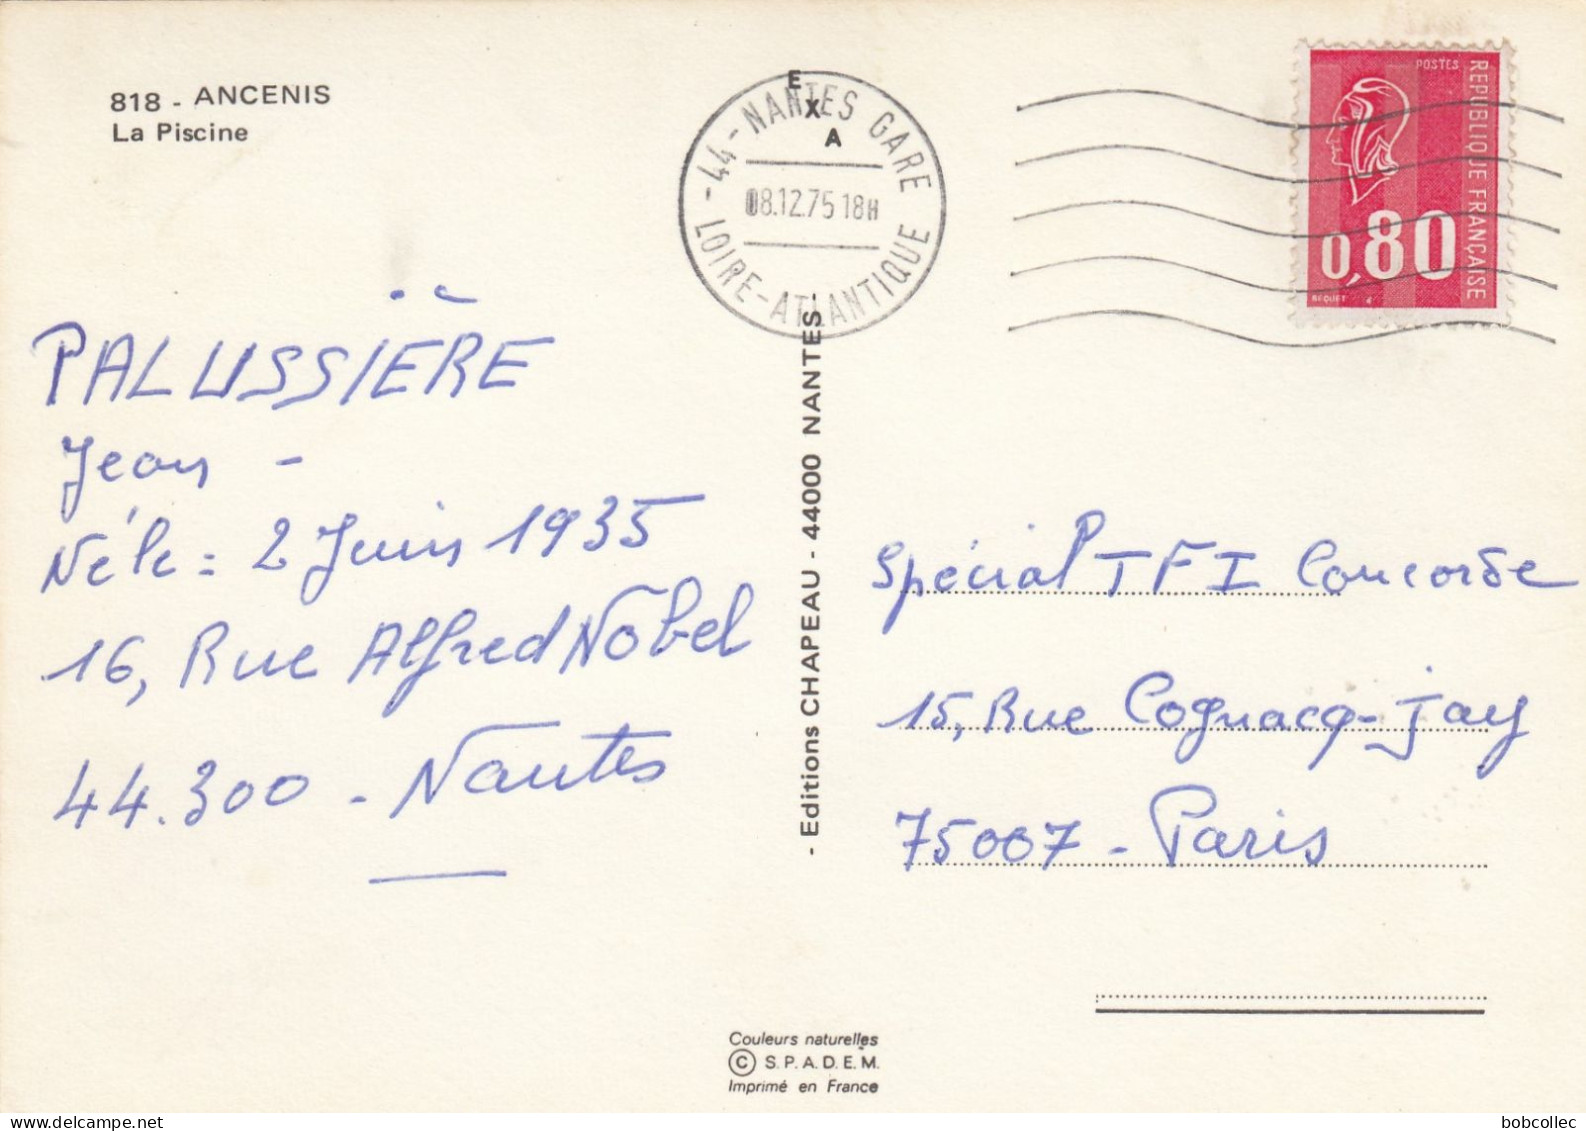 818 - ANCENIS
La Piscine
EXA
-44- NANTES GARE
08.12.75 18H
LOIRE-ATLANTIQUE
POSTES
REPUBLIQUE FRANÇAISE
0,80
BEQUET
PALUSSIÈRE
Jean -
Né le = 2 Juin 1935
16, Rue Alfred Nobel
44.300 - Nantes
- Editions CHAPEAU - 44000 NANTES -
Spécial TF1 Concorde
15, Rue Cognacq-Jay
75007 - Paris
Couleurs naturelles
© S.P.A.D.E.M.
Imprimé en France
bobcollec